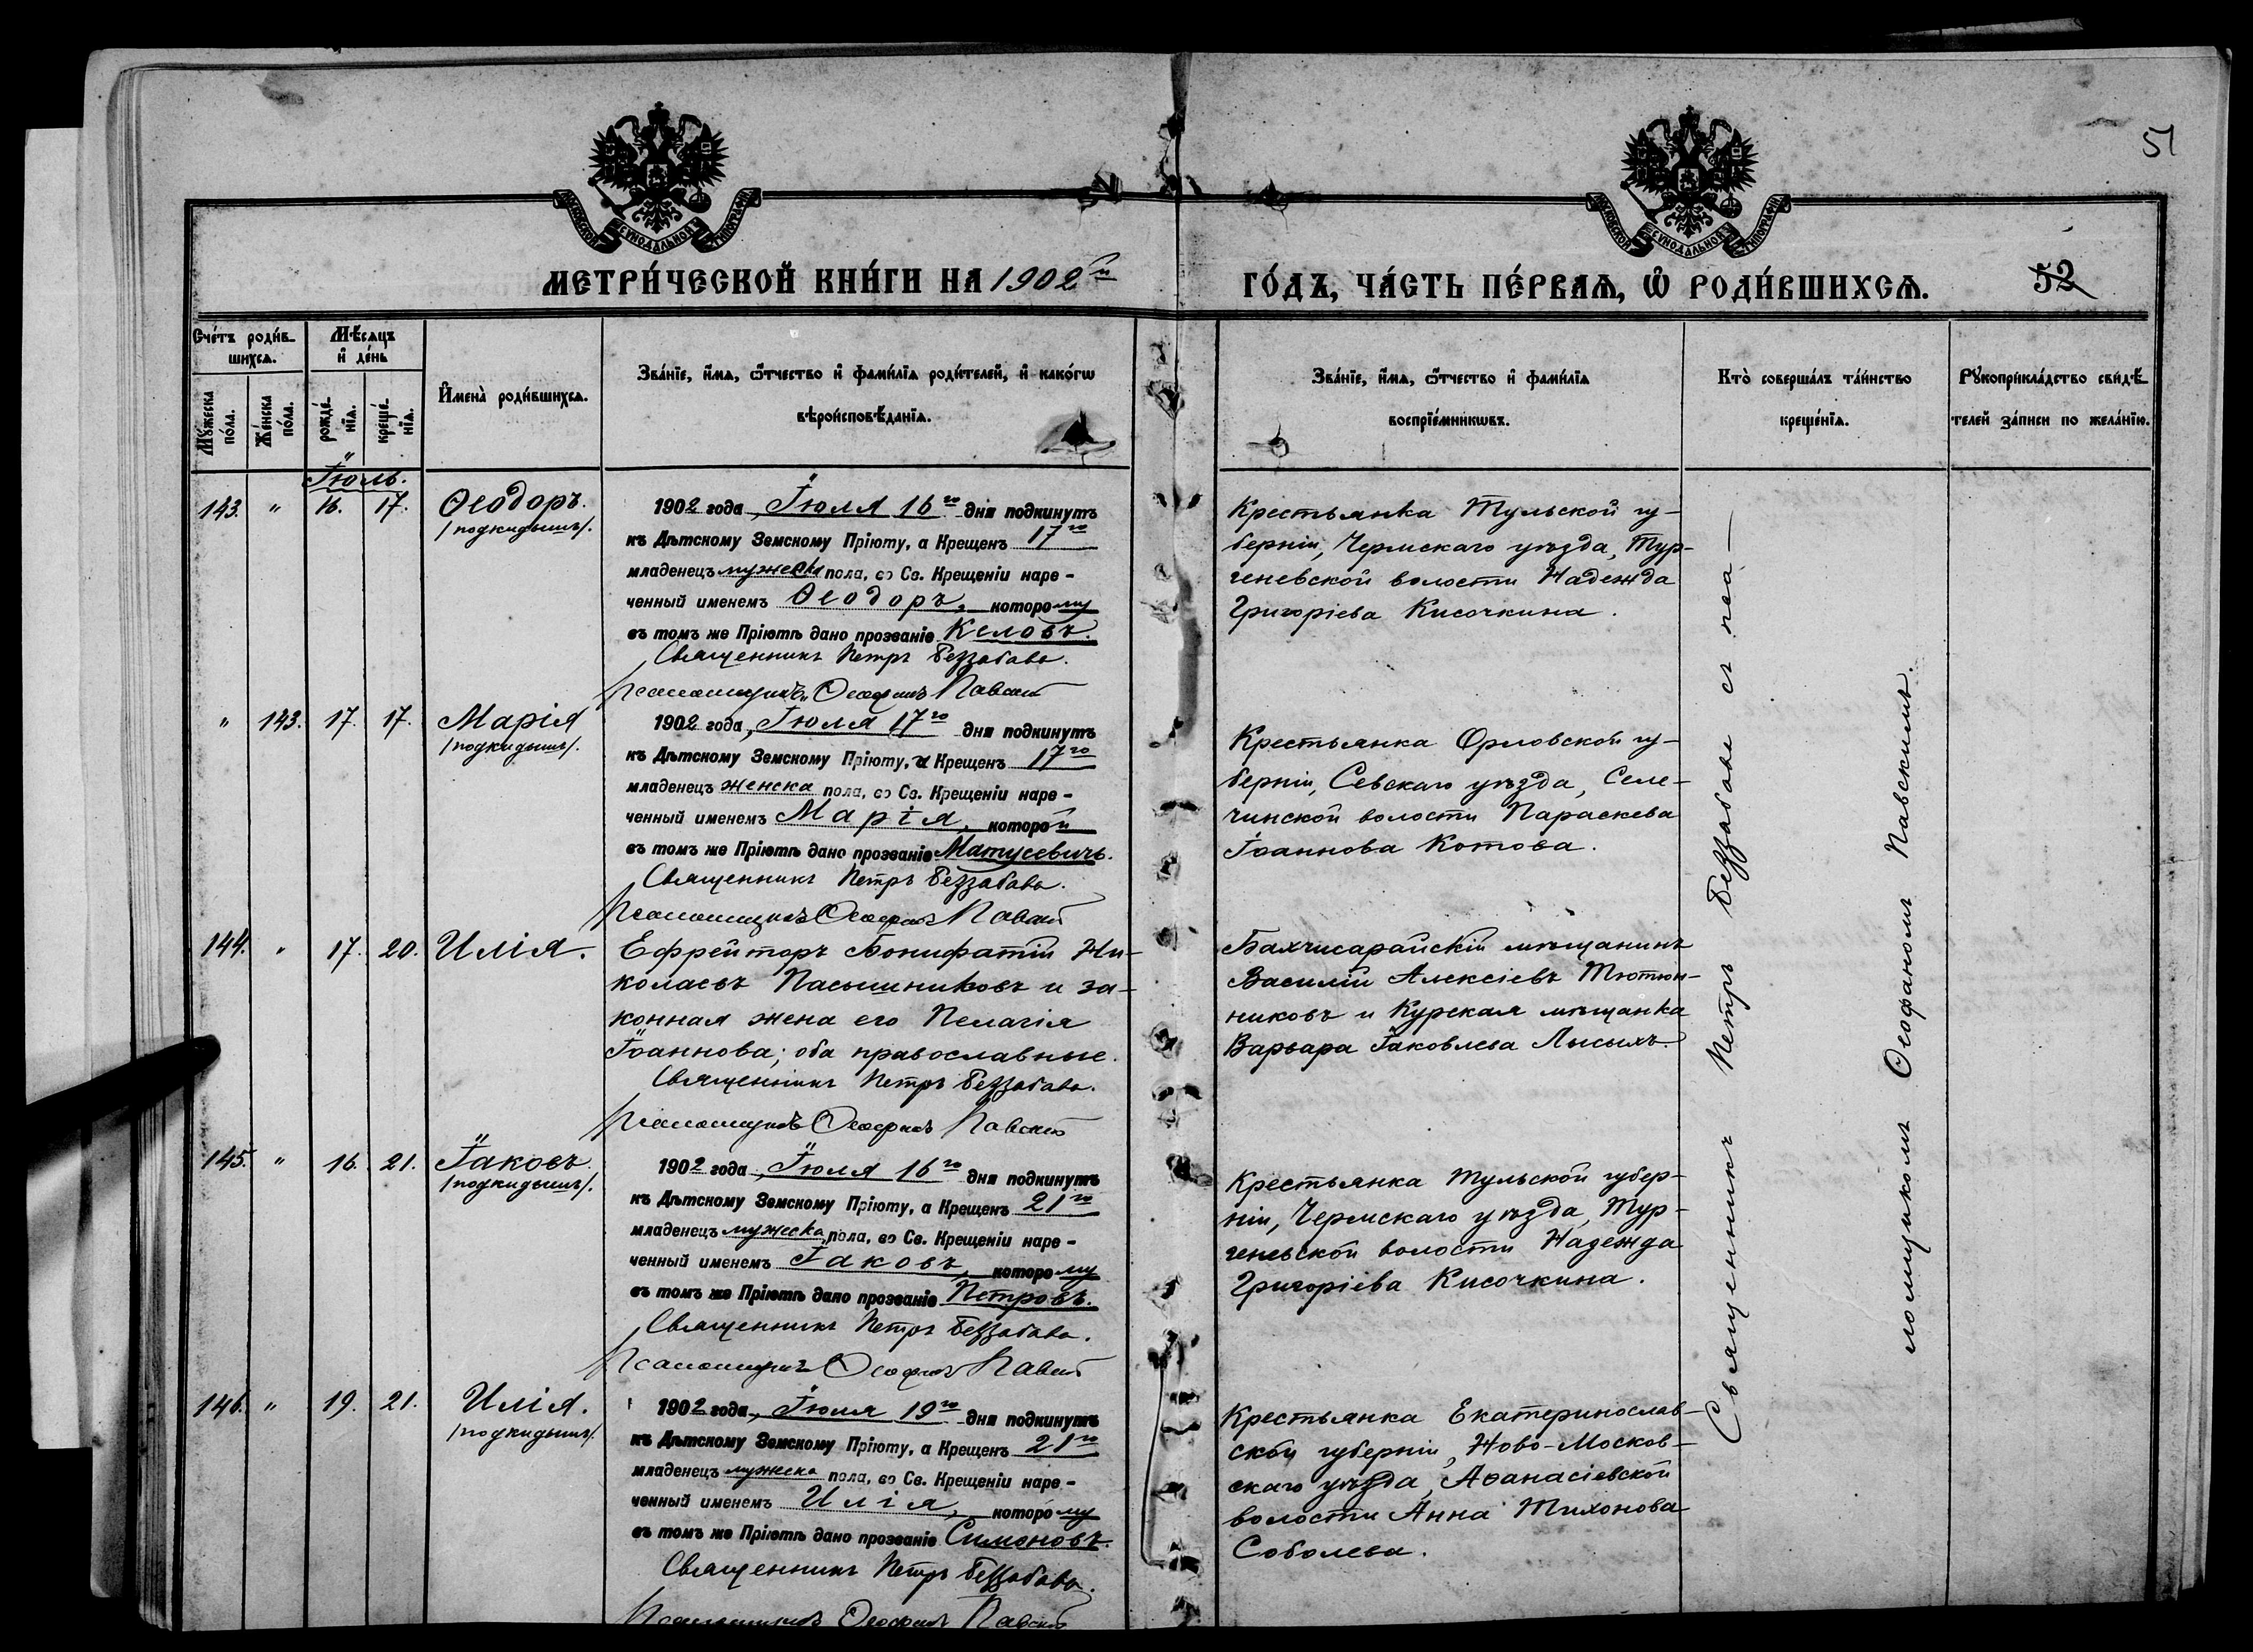 51
МОСКОВСКОЙ СУНОДАЛЬНОЙ ТИПОГРАФІИ
МОСКОВСКОЙ СУНОДАЛЬНОЙ ТИПОГРАФІИ
МЕТРИ́ЧЕСКОЙ КНИ́ГИ НА 1902й
ГО́ДЪ, ЧА́СТЬ ПЕ́РВАѦ, Ѡ҆ РОДИ́ВШИХСѦ.
52
Сче́тъ роди́в-
шихсѧ.
Мѣ́сѧцъ
и҆ де́нь
Мꙋ́жеска
по́ла.
Же́нска
по́ла.
рожде́-
нїѧ.
креще́-
нїѧ.
И҆мена̀ роди́вшихсѧ.
Зва́нїе, и҆́мѧ, ѻ҆́тчество и҆ фами́лїѧ роди́телей, и҆ како́гѡ
вѣроисповѣ́данїѧ.
Зва́нїе, и҆́мѧ, ѻ҆́тчество и҆ фами́лїѧ
воспрїе́мникѡвъ.
Кто̀ соверша́лъ та́инство
креще́нїѧ.
Рꙋкоприкла́дство свидѣ́-
телей за́писи по жела́нїю.
Іюль.
143. " 16. 17. Ѳеодоръ.
/подкидышъ/.
1902 года, Іюля 16го дня подкинутъ
къ Дѣтскому Земскому Пріюту, а Крещенъ 17го
младенецъ мужеска пола, во Св. Крещеніи наре-
ченный именемъ Ѳеодоръ, которому
въ томъ же Пріютѣ дано прозваніе Келовъ.
Священникъ Петръ Беззабава.
Псаломщикъ Ѳеофанъ Павскій
Крестьянка Тульской гу-
берніи, Чермскаго уѣзда, Тур-
геневской волости Надежда
Григоріева Кисочкина.
" 143. 17. 17. Марія
/подкидышъ/.
1902 года, Іюля 17го дня подкинутъ
къ Дѣтскому Земскому Пріюту, а Крещенъ 17го
младенецъ женска пола, во Св. Крещеніи наре-
ченный именемъ Марія, которой
въ томъ же Пріютѣ дано прозваніе Матусевичъ.
Священникъ Петръ Беззабава.
Псаломщикъ Ѳеофанъ Павскій
Крестьянка Орловской гу-
берніи, Севскаго уѣзда, Селе-
чинской волости Параскева
Іоаннова Котова.
144. " 17. 20. Илія.
Ефрейторъ Бонифатій Ни-
колаевъ Пасышниковъ и за-
конная жена его Пелагія
Іоаннова; оба православные.
Священникъ Петръ Беззабава.
Псаломщикъ Ѳеофанъ Павскій
Бахчисарайскій мѣщанинъ
Василій Алексіевъ Тютюн-
никовъ и Курская мѣщанка
Варвара Іаковлева Лысыхъ.
145. " 16. 21. Іаковъ.
/подкидышъ/.
1902 года, Іюля 16го дня подкинутъ
къ Дѣтскому Земскому Пріюту, а Крещенъ 21го
младенецъ мужеска пола, во Св. Крещеніи наре-
ченный именемъ Іаковъ, которому
въ томъ же Пріютѣ дано прозваніе Петровъ.
Священникъ Петръ Беззабава.
Псаломщикъ Ѳеофанъ Павскій
Крестьянка Тульской губер-
ніи, Чермскаго уѣзда, Тур-
геневской волости Надежда
Григоріева Кисочкина.
146. " 19. 21. Илія.
/подкидышъ/.
1902 года, Іюля 19го дня подкинутъ
къ Дѣтскому Земскому Пріюту, а Крещенъ 21го
младенецъ мужеска пола, во Св. Крещеніи наре-
ченный именемъ Илія, которому
въ томъ же Пріютѣ дано прозваніе Симоновъ.
Священникъ Петръ Беззабава.
Псаломщикъ Ѳеофанъ Павскій
Крестьянка Екатеринослав-
ской губерніи, Ново-Москов-
скаго уѣзда, Аѳанасіевской
волости Анна Тихонова
Соболева.
Священникъ Петръ Беззабава съ пса-
ломщикомъ Ѳеофаномъ Павскимъ.